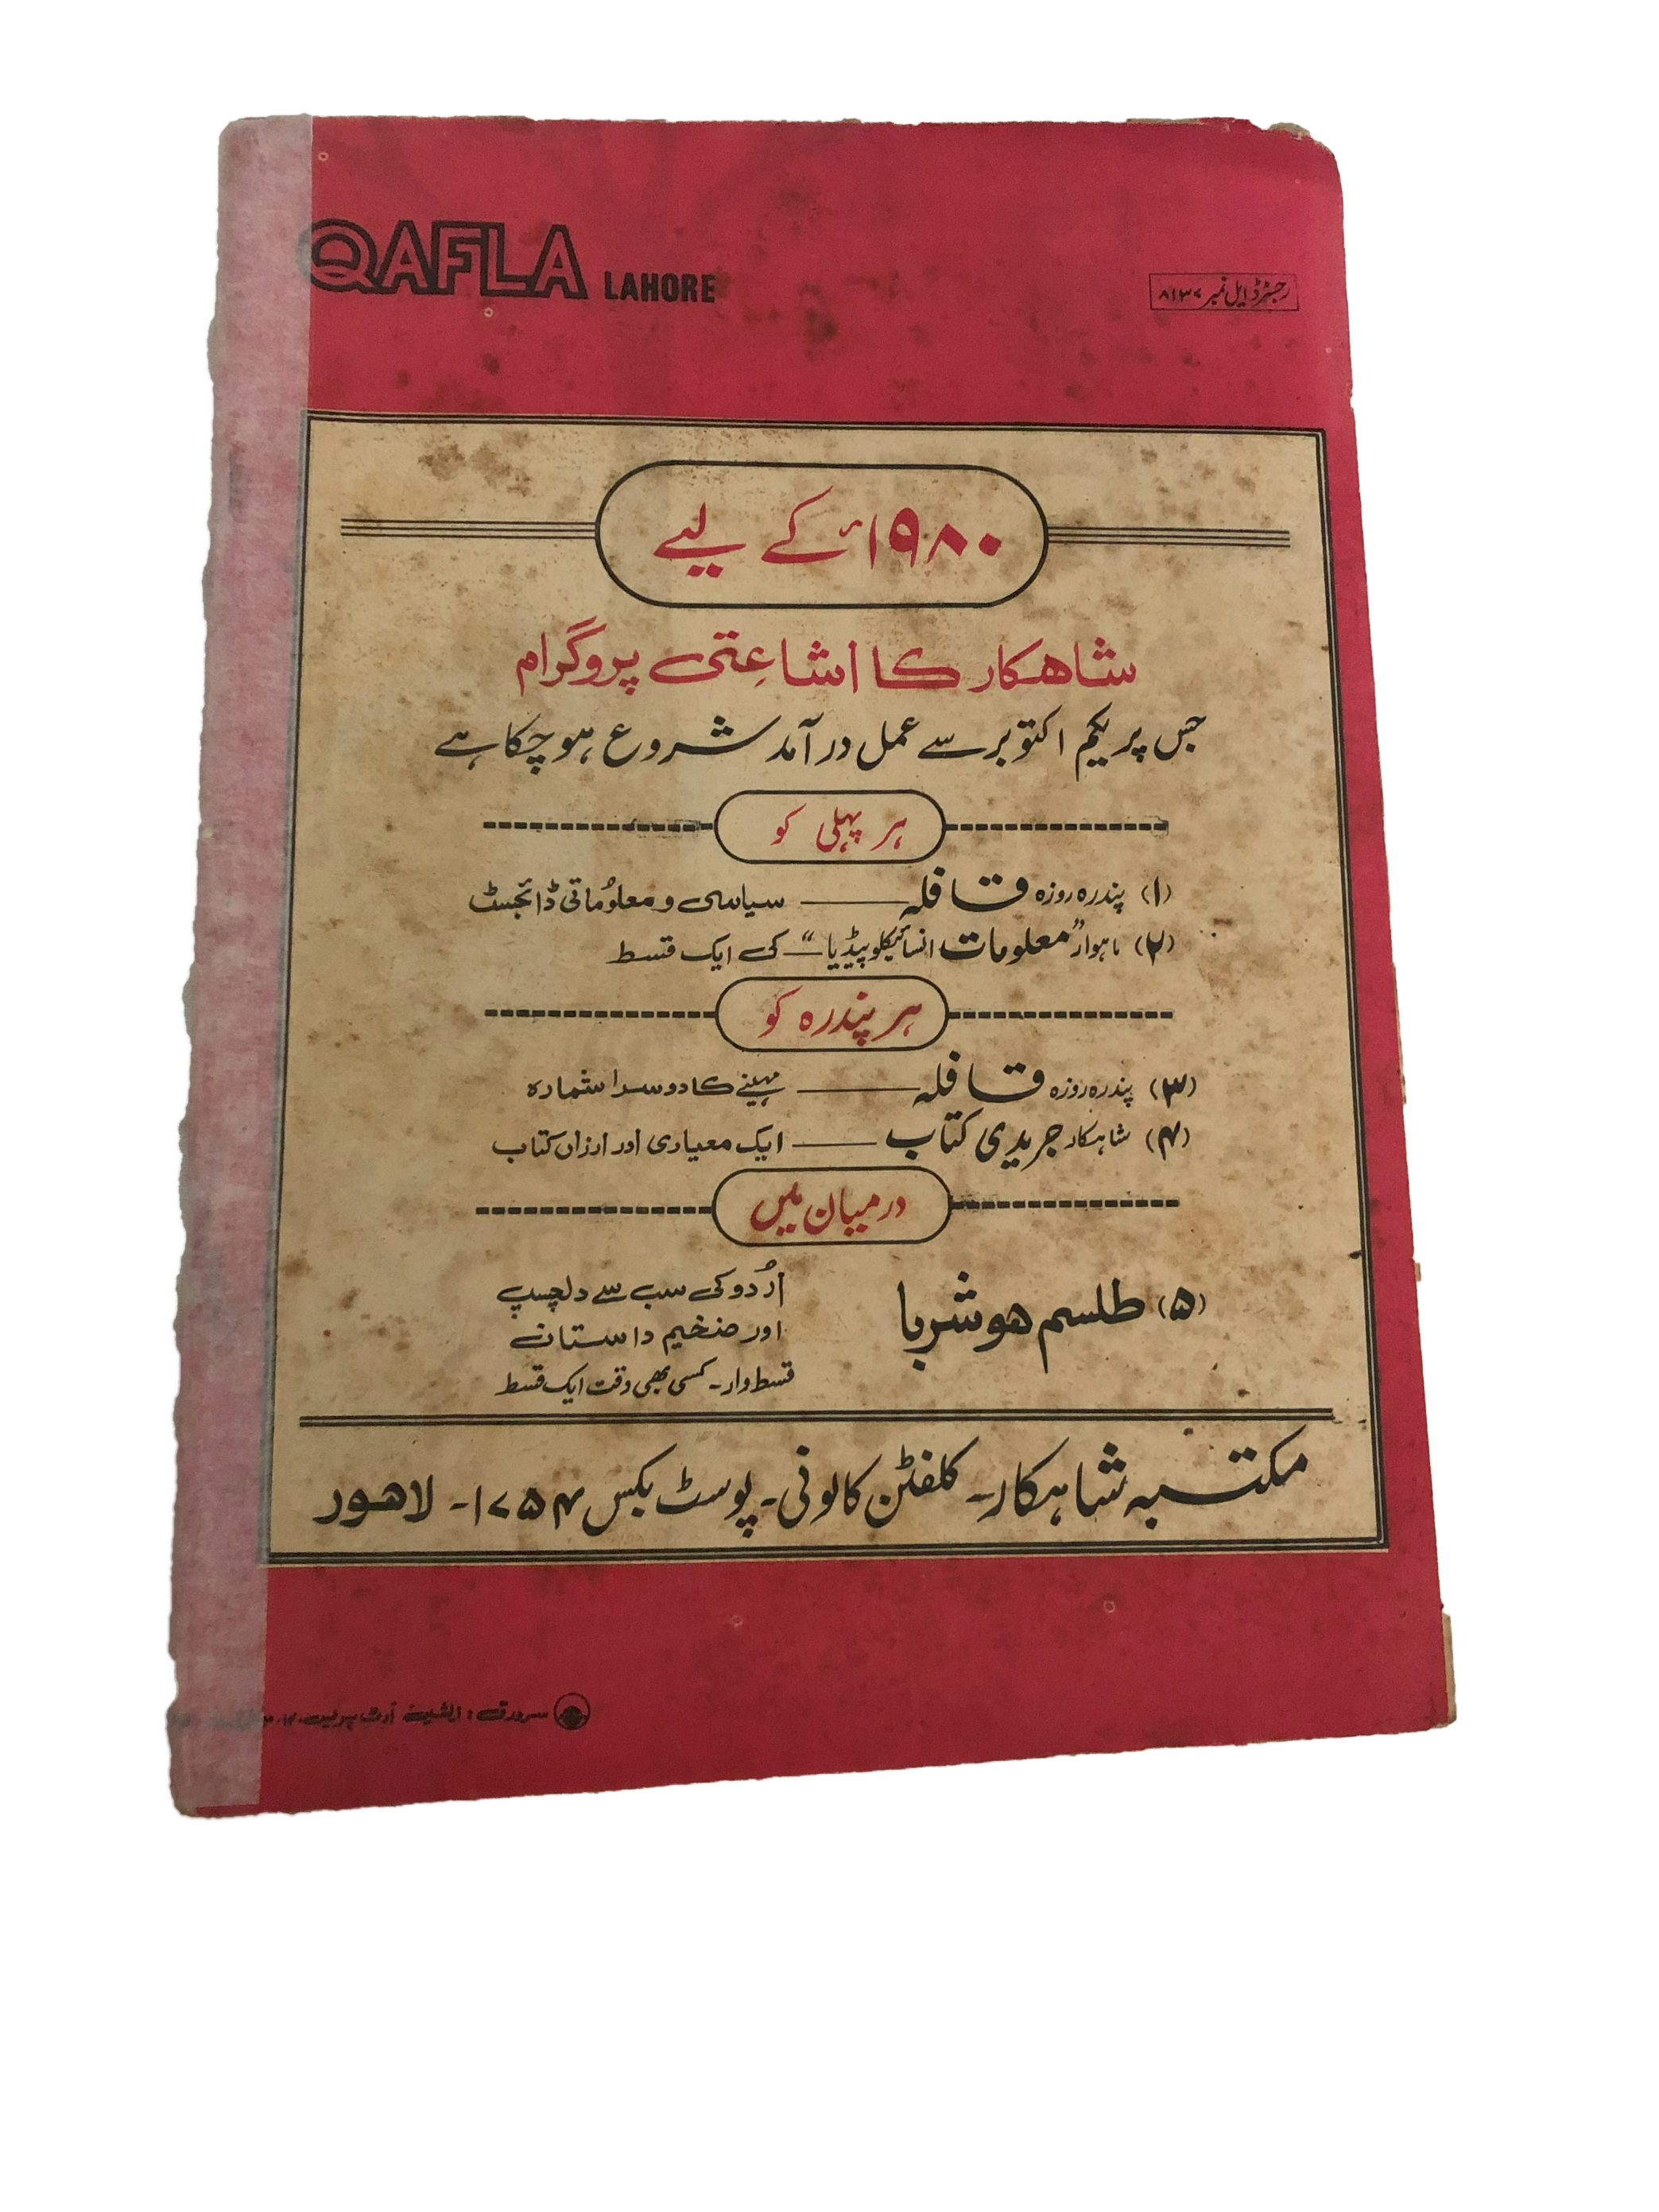 QAFLA LAHORE
رجسٹرڈ ایل نمبر ۸۱۳۷
۱۹۸۰ء کے لیے
شاھکار کا اشاعتی پروگرام
جس پر یکم اکتوبر سے عمل در آمد شروع ہو چکا ہے
ہر پہلی کو
(۱) پندرہ روزہ قافلہ ــــ سیاسی و معلُوماتی ڈائجسٹ
(۲) ماہوار ”معلومات انسائیکلوپیڈیا“ ــ کی ایک قسط
ہر پندرہ کو
(۳) پندرہ روزہ قافلہ ــــ مہینے کا دوسرا شمارہ
(۴) شاہکار جریدی کتاب ــــ ایک معیاری اور ارزاں کتاب
درمیان میں
(۵) طلسم ھوشربا
اُردو کی سب سے دلچسپ
اور ضخیم داستان
قسط وار - کسی بھی وقت ایک قسط
مکتبہ شاہکار - کلفٹن کالونی - پوسٹ بکس ۱۷۵۴ - لاھور
سرورق : آرٹ پریس